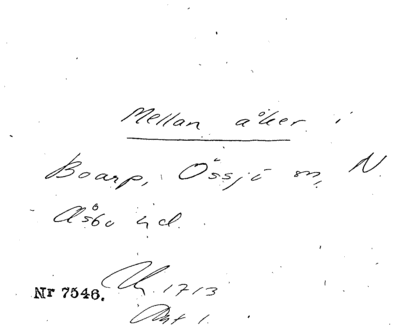 Mellan åker i
Boarp, Össjö sn, N.
Åsbo hd.
Nr 7546. Uh. 1713
Avt 1.